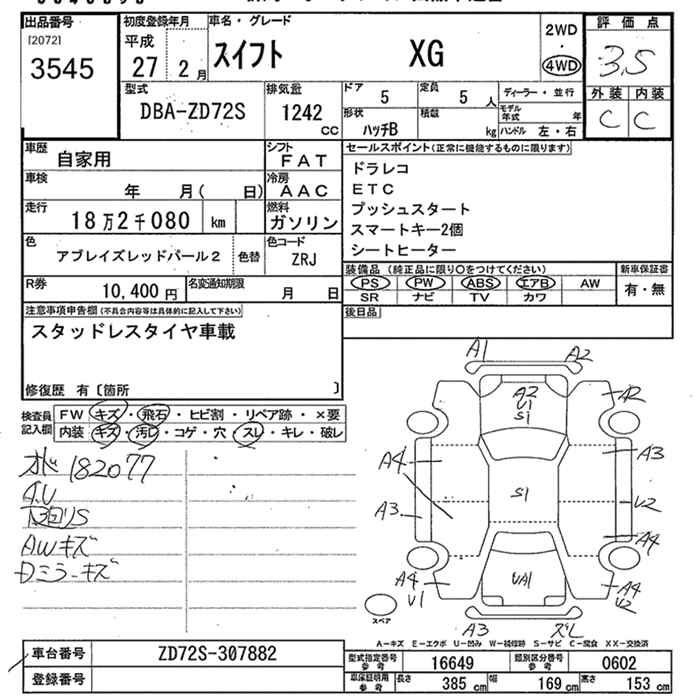 出品番号
[2072]
3545
初度登録年月
平成
27 2月
車名・グレード
スイフト XG
2WD
・
4WD
評価点
3.5
外装 内装
C C
型式
DBA-ZD72S
排気量
1242 cc
ドア 5
定員 5 人
ディーラー・並行
形状
ハッチB
積載 kg
モデル年式 年
ハンドル 左・右
車歴
自家用
シフト
FAT
車検
年 月( 日)
冷房
AAC
走行
18万2千080 km
燃料
ガソリン
色
アブレイズレッドパール2
色替
色コード
ZRJ
R券
10,400円
名変通知期限
月 日
セールスポイント(正常に機能するものに限ります)
ドラレコ
ETC
プッシュスタート
スマートキー2個
シートヒーター
装備品 (純正品に限り○をつけてください)
新車保証書
PS PW ABS エアB AW
有・無
SR ナビ TV カワ
後日品
注意事項申告欄(不具合内容等は具体的に記入して下さい)
スタッドレスタイヤ車載
修復歴 有〔箇所 〕
検査員記入欄
FW キズ・飛石・ヒビ割・リペア跡・×要
内装 キズ・汚レ・コゲ・穴・スレ・キレ・破レ
オド182077
A.U
AWキズ
Dミラーキズ
A1 A2
A2
U1
S1
A2
A4 A3
S1
A3 U2
A4
A4
U1
UA1
A4
U2
スペア
A3 ズレ
A-キズ E-エクボ U-凹み W-補修跡 S-サビ C-腐食 XX-交換済
車台番号
ZD72S-307882
登録番号
型式指定番号参考
16649
類別区分番号参考
0602
車庫証明用参考
長さ 385 cm 幅 169 cm 高さ 153 cm